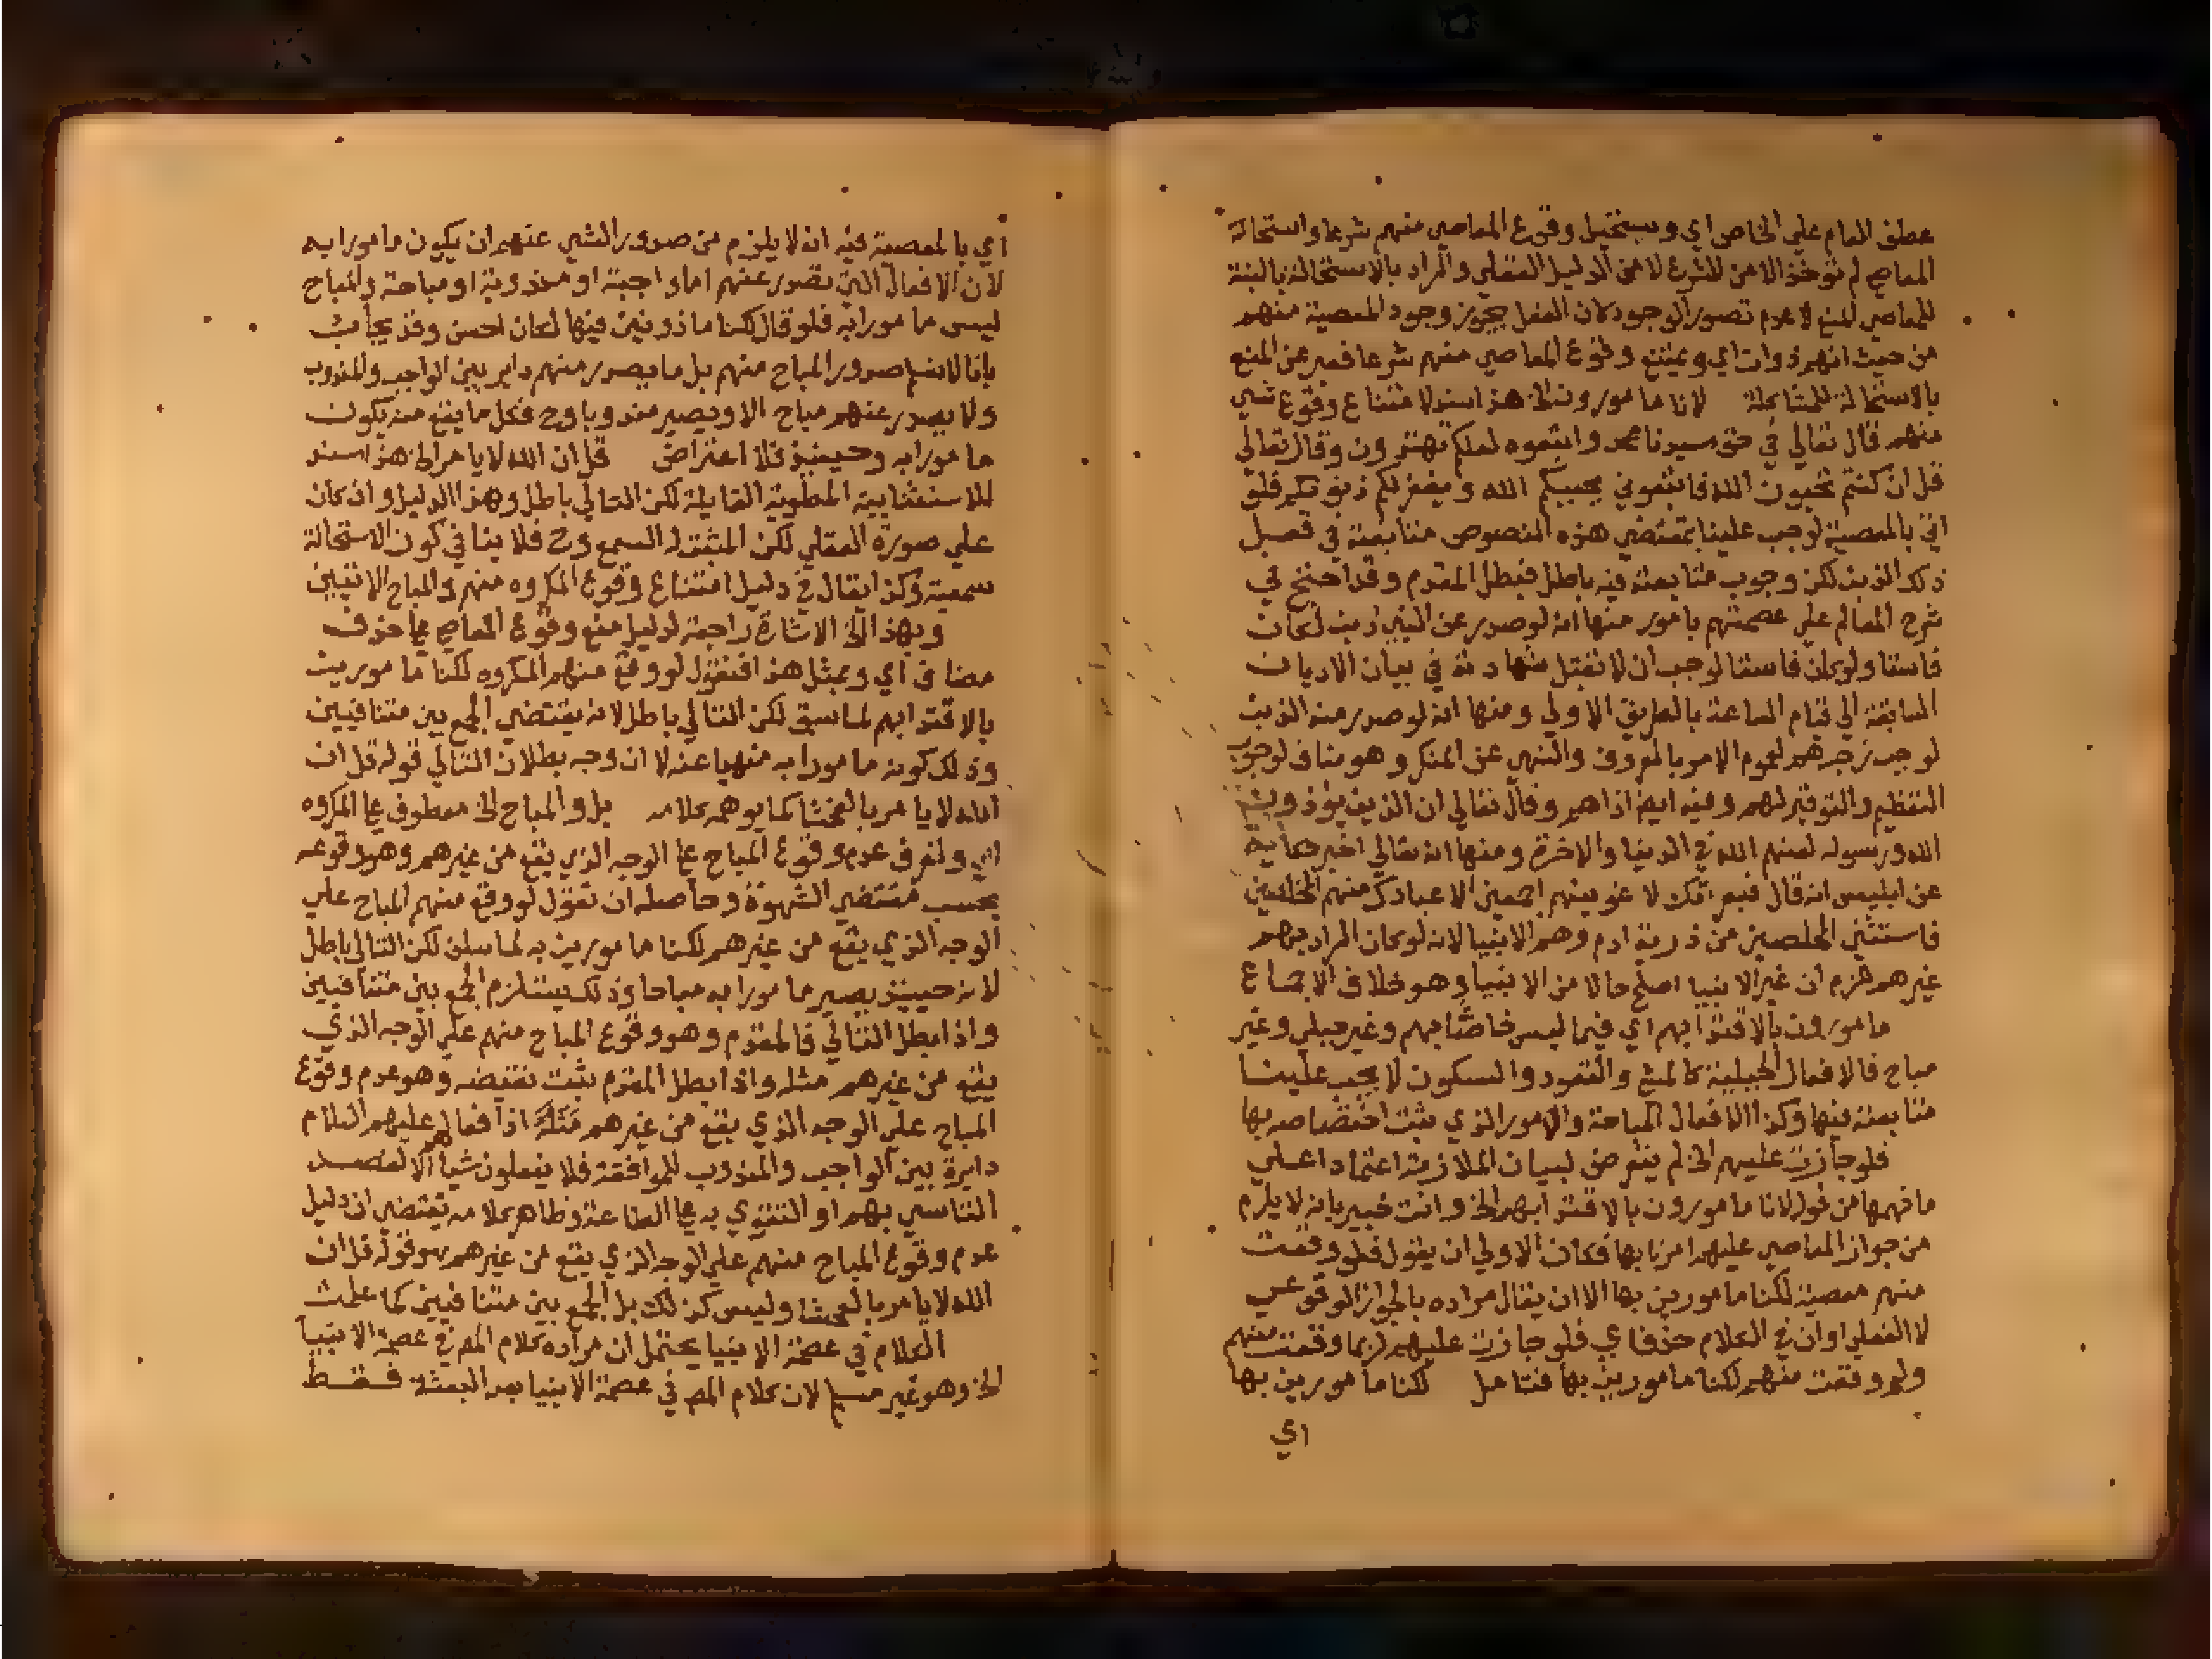 عطف العام علي الخاص اي ويستحيل وقوع المعاصي منهم شرعا واستحالة
المعاصي لم توخذ الا من الشرع لا من الدليل العقلي والمراد بالاستحالة بالنسبة
للمعاصي المنع لا عدم تصور الوجود لان العقل يجوز وجود المعصية منهم
من حيث انهم ذوات اي ويمتنع وقوع المعاصي منهم شرعا فعبر عن المنع
بالاستحالة للمشاكلة لانا مامورون الخ هذا سند لامتناع وقوع شي
منهم قال تعالي في حق سيدنا محمد واتبعوه لعلكم تهتدون وقال تعالي
قل ان كنتم تحبون الله فاتبعوني يحببكم الله ويغفر لكم ذنوبكم فلو
اتي بالمعصية لوجب علينا بمقتضي هذه النصوص متابعته في فعل
ذلك الذنب لكن وجوب متابعته فيه باطل فبطل المقدم وقد احتج في
شرح المعالم علي عصمتهم بامور منها انه لو صدر عن النبي ذنب لكان
فاسقا ولو كان فاسقا لوجب ان لا تقبل شهادته في بيان الاديان
السابقة الي قيام الساعة بالطريق الاولي ومنها انه لو صدر منه الذنب
لوجب زجرهم لعموم الامر بالمعروف والنهي عن المنكر وهو مناف لوجوب
التعظيم والتوقير لهم وفيه ايضا اذاهم وقال تعالي ان الذين يوذون
الله ورسوله لعنهم الله في الدنيا والاخرة ومنها انه تعالي اخبر حكاية
عن ابليس انه قال فبعزتك لاغوينهم اجمعين الا عبادك منهم المخلصين
فاستثني المخلصين من ذرية ادم وهم الانبيا لانه لو كان المراد بهم
غيرهم لزم ان غير الانبيا اصلح حالا من الانبيا وهو خلاف الاجماع
مامورون بالاقتدا بهم اي فيما ليس خاصا بهم وغير جبلي وغير
مباح فالافعال الجبلية كالمشي والقعود والسكون لا يجب علينا
متابعته فيها وكذا الافعال المباحة والامور الذي يثبت اختصاصه بها
فلو جازت عليهم الخ لم يتعرض لبيان الملازمة اعتمادا علي
ما فهمها من قوله لانا مامورون بالاقتدا بهم الخ وانت خبير بانه لا يلزم
من جواز المعاصي عليهم امرنا بها فكان الاولي ان يقول فلو وقعت
منهم معصية لكنا مامورين بها الا ان يقال مراده بالجواز الوقوعي
لا العقلي او ان في الكلام حذفا اي فلو جازت عليهم لربما وقعت منهم
ولو وقعت منهم لكنا مامورين بها فتامل لكنا مامورين بها
اي
اي بالمعصية فيه انه لا يلزم من صدور الشي عنهم ان يكون مامورا به
لان الافعال التي تصدر عنهم اما واجبة او مندوبة او مباحة والمباح
ليس مامورا به فلو قال لكنا ماذونين فيها لكان احسن وقد يجاب
بانا لا نسلم صدور المباح منهم بل ما يصدر منهم داير بين الواجب والمندوب
ولا يصدر عنهم مباح الا ويصير مندوبا وح فكل ما يقع منه يكون
مامورا به وحينئذ فلا اعتراض قل ان الله لا يامر الخ هذا سند
للاستثنايية المطوية القايلة لكن التالي باطل وهذا الدليل وان كان
علي صورة العقلي لكن المثبت له السمع وح فلا ينافي كون الاستحالة
سمعية وكذا يقال في دليل امتناع وقوع المكروه منهم والمباح الاتيين
وبهذا الخ الاشارة راجعة لدليل منع وقوع المعاصي علي حذف
مضاف اي وبمثل هذا فنقول لو وقع منهم المكروه لكنا مامورين
بالاقتدا بهم لما سبق لكن التالي باطل لانه يقتضي الجمع بين متنافيين
وذلك كونه مامورا به منهيا عنه لا ان وجه بطلان التالي قوله قل ان
الله لا يامر بالفحشا كما يوهمه كلامه بل والمباح الخ معطوف علي المكروه
اي ولنعرف عدم وقوع المباح علي الوجه الذي يقع من غيرهم وهو وقوعه
بحسب مقتضي الشهوة وحاصله ان تقول لو وقع منهم المباح علي
الوجه الذي يقع من غيرهم لكنا مامورين به لما سلف لكن التالي باطل
لانه حينئذ يصير مامورا به مباحا وذلك يستلزم الجمع بين متنافيين
واذا بطل التالي فالمقدم وهو وقوع المباح منهم علي الوجه الذي
يقع من غيرهم مثله واذا بطل المقدم ثبت نقيضه وهو عدم وقوع
المباح علي الوجه الذي يقع من غيرهم مثله اذ افعالهم عليهم السلام
دايرة بين الواجب والمندوب للموافقة فلا يفعلون شيا الا لقصد
التاسي بهم او التقوي به علي الطاعة وظاهر كلامه يقتضي ان دليل
عدم وقوع المباح منهم علي الوجه الذي يقع من غيرهم هو قوله قل ان
الله لا يامر بالفحشا وليس كذلك بل الجمع بين متنافيين كما علمت
الكلام في عصمة الانبيا يحتمل ان مراده كلام المص في عصمة الانبيا
الخ وهو غير مسلم لان كلام المص في عصمة الانبيا بعد البعثة فقط